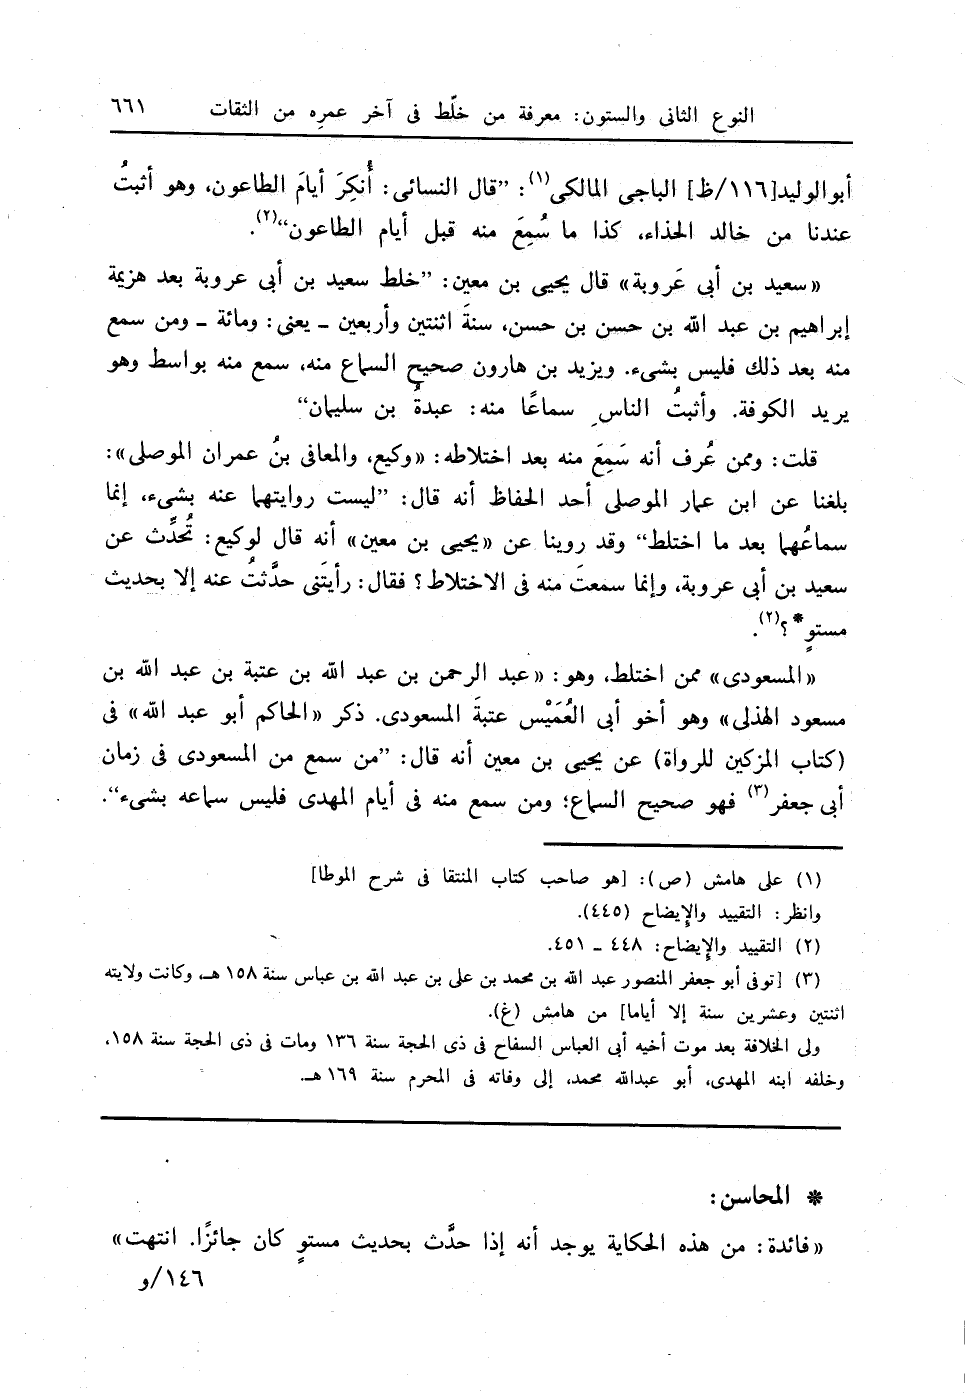 النوع الثانى والستون: معرفة من خلّط فى آخر عمرِه من الثقات ٦٦١
أبوالوليد[١١٦/ظ] الباجى المالكى(١): ”قال النسائى: أُنكِرَ أيامَ الطاعون، وهو أثبتُ
عندنا من خالد الحذاء، كذا ما سُمِعَ منه قبل أيام الطاعون“(٢).
«سعيد بن أبى عَروبة» قال يحيى بن معين: ”خلط سعيد بن أبى عروبة بعد هزيمة
إبراهيم بن عبد الله بن حسن بن حسن، سنةَ اثنتين وأربعين ـ يعنى: ومائة ـ ومن سمع
منه بعد ذلك فليس بشىء. ويزيد بن هارون صحيح السماع منه، سمع منه بواسط وهو
يريد الكوفة. وأثبتُ الناسِ سماعًا منه: عبدةُ بن سليمان“
قلت: وممن عُرف أنه سَمِعَ منه بعد اختلاطه: «وكيع، والمعافى بنُ عمران الموصلى»:
بلغنا عن ابن عمار الموصلى أحد الحفاظ أنه قال: ”ليست روايتهما عنه بشىء، إنما
سماعُهما بعد ما اختلط“ وقد روينا عن «يحيى بن معين» أنه قال لوكيع: تُحدِّث عن
سعيد بن أبى عروبة، وإنما سمعتَ منه فى الاختلاط؟ فقال: رأيتَنى حدَّثتُ عنه إلا بحديث
مستوٍ*؟(٢).
«المسعودى» ممن اختلط، وهو: «عبد الرحمن بن عبد الله بن عتبة بن عبد الله بن
مسعود الهذلى» وهو أخو أبى العُمَيْس عتبةَ المسعودى. ذكر «الحاكم أبو عبد الله» فى
(كتاب المزكين للرواة) عن يحيى بن معين أنه قال: ”من سمع من المسعودى فى زمان
أبى جعفر(٣) فهو صحيح السماع؛ ومن سمع منه فى أيام المهدى فليس سماعه بشىء“.
(١) على هامش (ص): [هو صاحب كتاب المنتقا فى شرح الموطا]
وانظر: التقييد والإيضاح (٤٤٥).
(٢) التقييد والإيضاح: ٤٤٨ ـ ٤٥١.
(٣) [توفى أبو جعفر المنصور عبد الله بن محمد بن على بن عبد الله بن عباس سنة ١٥٨ هـ، وكانت ولايته
اثنتين وعشرين سنة إلا أياما] من هامش (غ).
ولى الخلافة بعد موت أخيه أبى العباس السفاح فى ذى الحجة سنة ١٣٦ ومات فى ذى الحجة سنة ١٥٨،
وخلفه ابنه المهدى، أبو عبدالله محمد، إلى وفاته فى المحرم سنة ١٦٩ هـ.
* المحاسن:
«فائدة: من هذه الحكاية يوجد أنه إذا حدَّث بحديث مستوٍ كان جائزًا. انتهت»
١٤٦/و